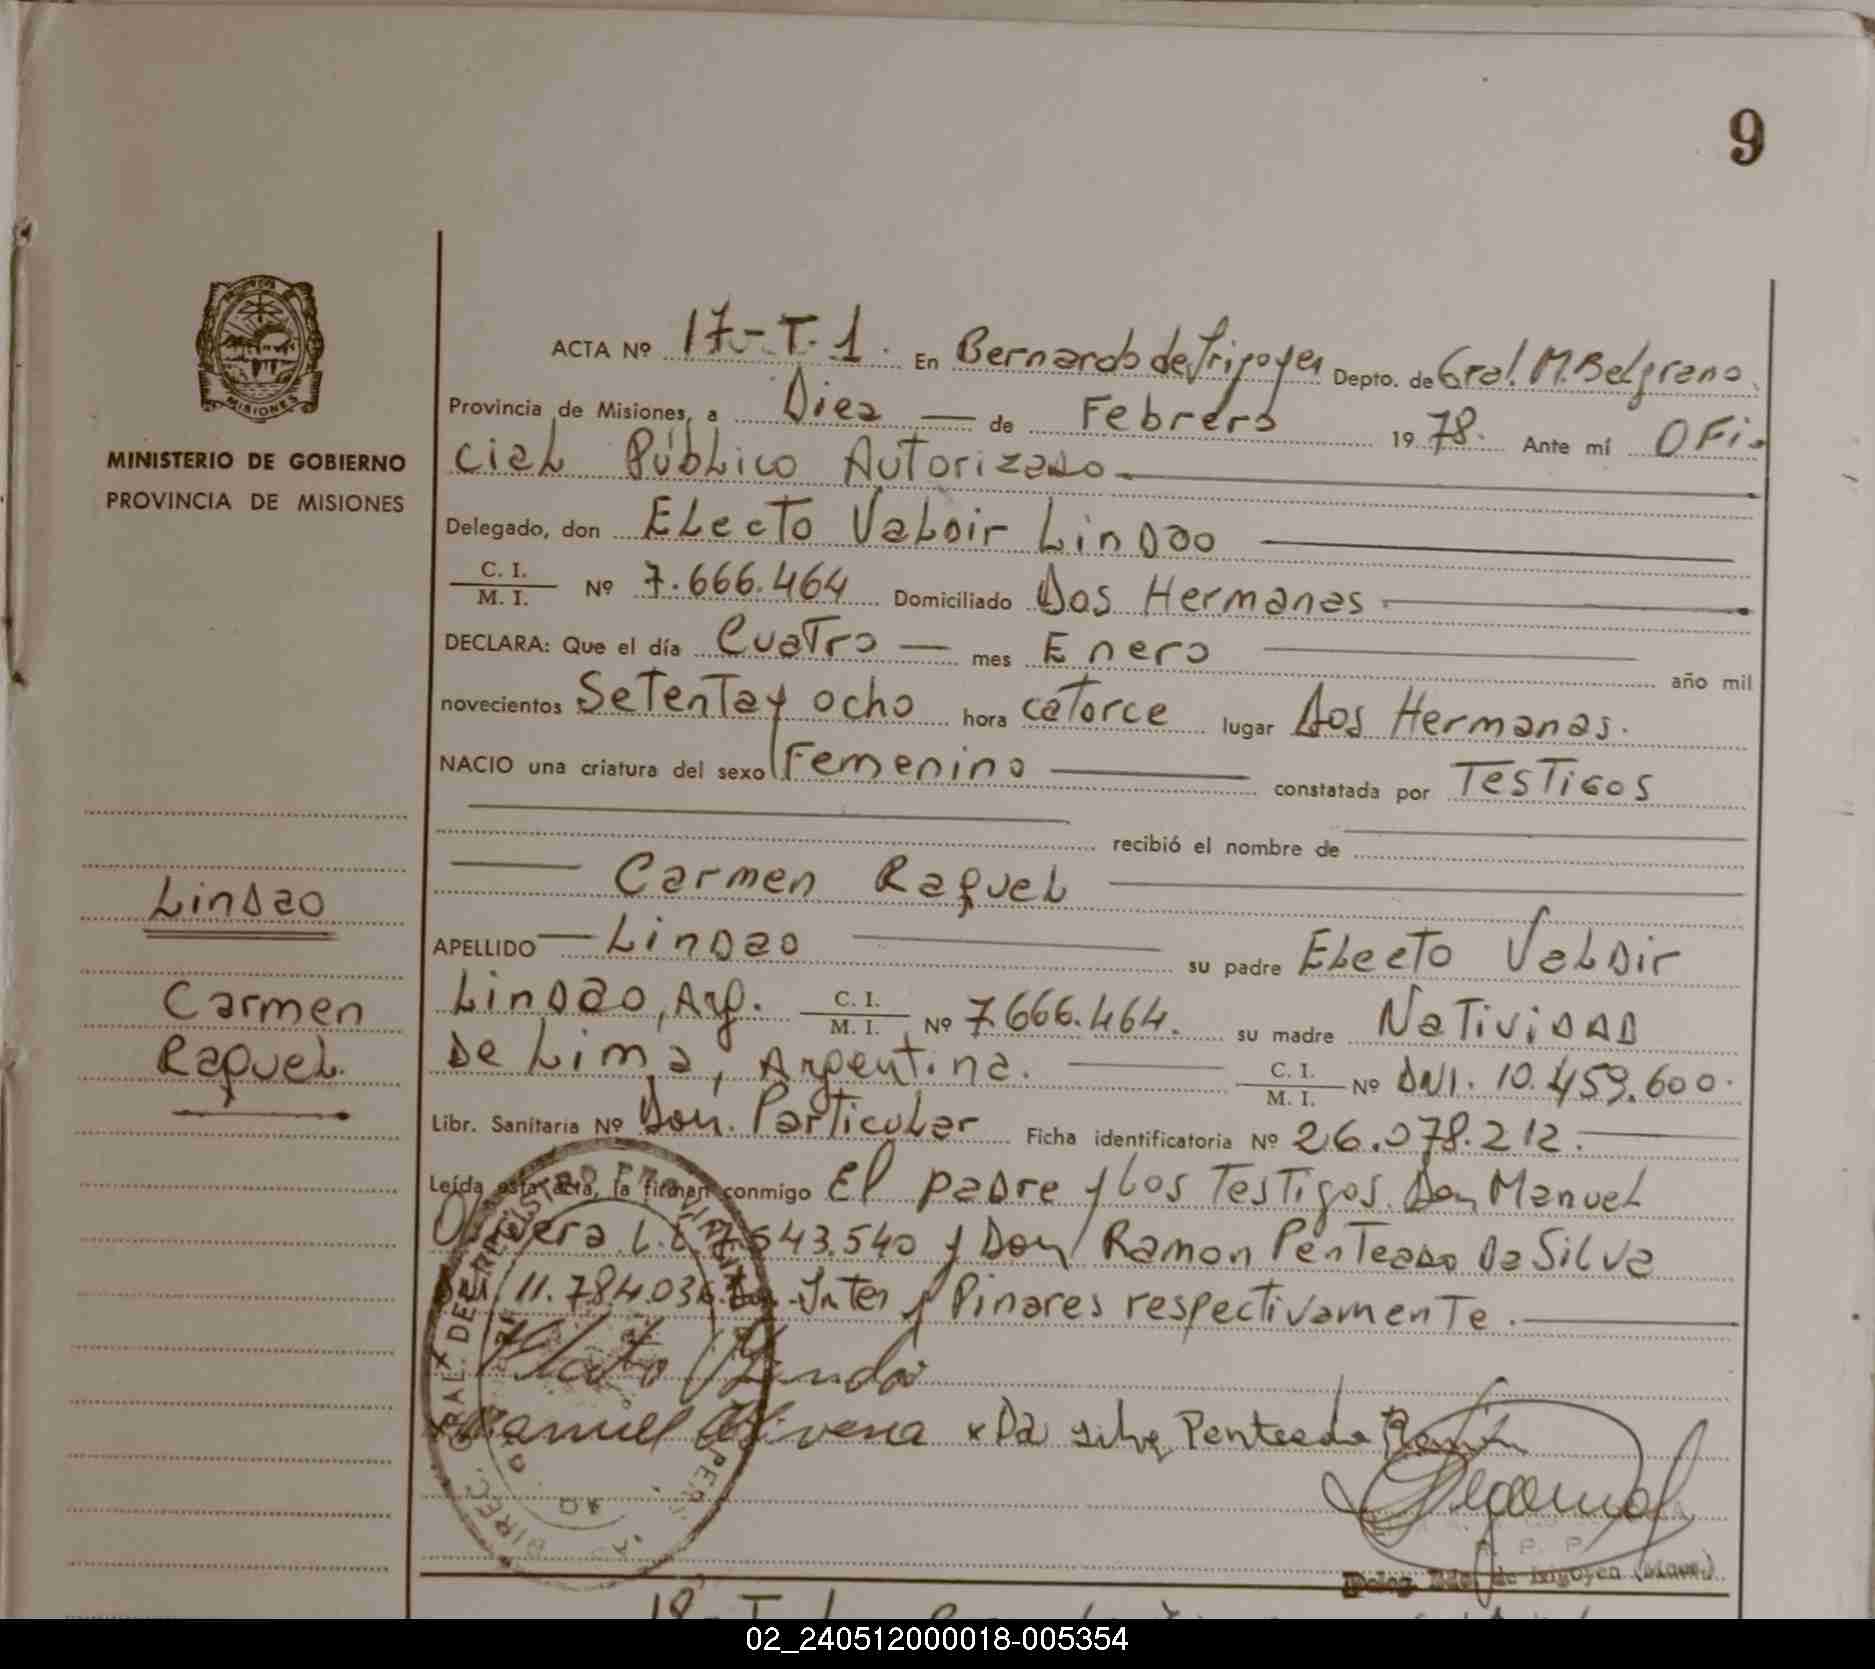 9
MISIONES
MINISTERIO DE GOBIERNO
PROVINCIA DE MISIONES
Lindao
Carmen
Raquel.
ACTA Nº 17-T-1. En Bernardo de Irigoyen Depto. de Gral. M. Belgrano.
Provincia de Misiones, a Diez de Febrero 1978. Ante mí Ofi-
cial Público Autorizado
Delegado, don Electo Valdir Lindao
C. I. / M. I. Nº 7.666.464 Domiciliado Dos Hermanas.
DECLARA: Que el día Cuatro mes Enero año mil
novecientos Setenta y ocho hora catorce lugar Dos Hermanas.
NACIO una criatura del sexo Femenino constatada por Testigos
recibió el nombre de
Carmen Raquel
APELLIDO Lindao su padre Electo Valdir
Lindao, Arg. C. I. / M. I. Nº 7.666.464. su madre Natividad
De Lima, Argentina. C. I. / M. I. Nº DNI. 10.459.600.
Libr. Sanitaria Nº Dom. Particular Ficha identificatoria Nº 26.078.212.
Leída esta acta, la firman conmigo El padre y Los Testigos Don Manuel
Olivera L.E. 7.543.540 y Don Ramon Penteado Da Silva
DNI. 11.784.036. Inter y Pinares respectivamente.
Electo Lindao
Manuel Olivera x Da silva Penteado Ramón
Deleg. Bdo. de Irigoyen (Mnes.)
02_240512000018-005354